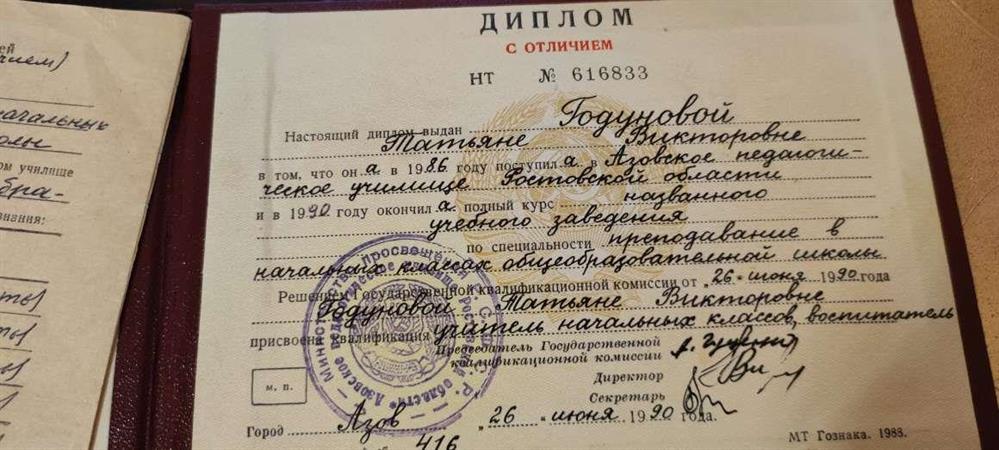 ей
нием)
начальных
олы
ом училище
обра-
знания:
ДИПЛОМ
С ОТЛИЧИЕМ
НТ № 616833
Настоящий диплом выдан Годуновой
Татьяне Викторовне
в том, что он а в 1986 году поступил а в Азовское педагоги-
ческое училище Ростовской области
и в 1990 году окончил а полный курс названного
учебного заведения
по специальности преподавание в
начальных классах общеобразовательной школы
Решением Государственной квалификационной комиссии от „26" июня 1990 года
Годуновой Татьяне Викторовне
присвоена квалификация учитель начальных классов, воспитатель
Председатель Государственной
квалификационной комиссии
Директор
Секретарь
М. П.
Город Азов „26" июня 1990 года
416
МТ Гознака. 1988.